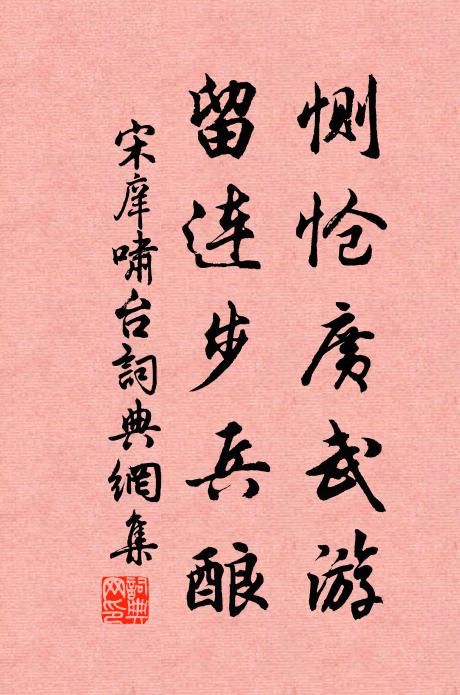 恻怆广武游
留连步兵酿
宋庠啸台詞典網集
詞典网印